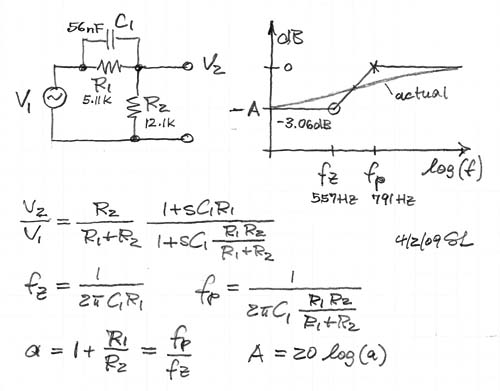 56nF C₁
R₁
5.11K
V₁
R₂
12.1K
V₂
dB
0
-A
actual
-3.06dB
fz fp log(f)
557Hz 791Hz
V₂/V₁ = R₂/(R₁+R₂) (1+sC₁R₁)/(1+sC₁ R₁R₂/(R₁+R₂))
4/2/09 SL
fz = 1/(2πC₁R₁) fp = 1/(2πC₁ R₁R₂/(R₁+R₂))
a = 1+ R₁/R₂ = fp/fz A = 20 log(a)